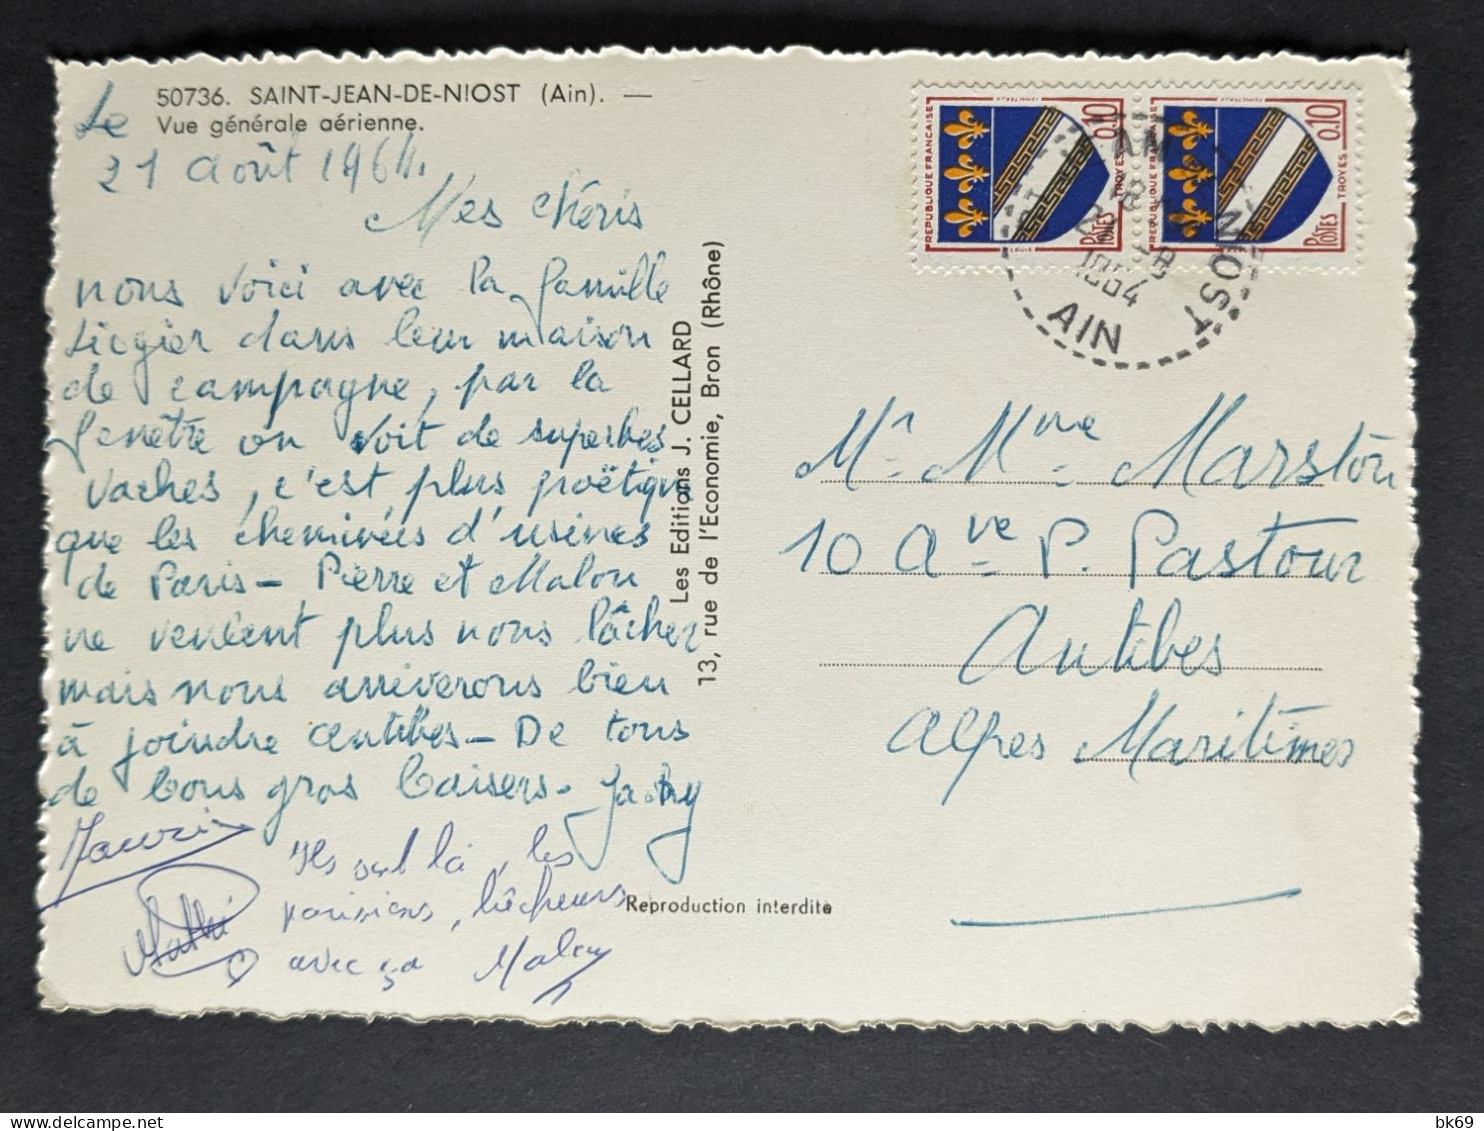 50736. SAINT-JEAN-DE-NIOST (Ain). —
Vue générale aérienne.
Le
21 Août 1964.
Mes chéris
nous voici avec la famille
Liogier dans leur maison
de campagne, par la
fenêtre on voit de superbes
vaches, c'est plus poëtique
que les cheminées d'usines
de Paris - Pierre et Malou
ne veulent plus nous lâcher
mais nous arriverons bien
à joindre Antibes - De tous
de bons gros baisers. Jacky
Ils sont là, les
parisiens, lâcheurs
avec ça Malou
Mathi
Les Editions J. CELLARD
13, rue de l'Economie, Bron (Rhône)
Reproduction interdite
REPUBLIQUE FRANCAISE
0,10
TROYES
POSTES
REPUBLIQUE FRANCAISE
0,10
TROYES
POSTES
NIOST
1964
AIN
Mr. Mme. Marston
10 Ave P. Pastour
Antibes
Alpes Maritimes
bk69